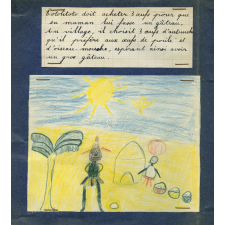 Totolitoto doit acheter 3 œufs pour que
sa maman lui fasse un gâteau.
Au village, il choisit 3 œufs d'autruche
qu'il préfère aux œufs de poule et
d'oiseau mouche, espérant ainsi avoir
un gros gâteau.